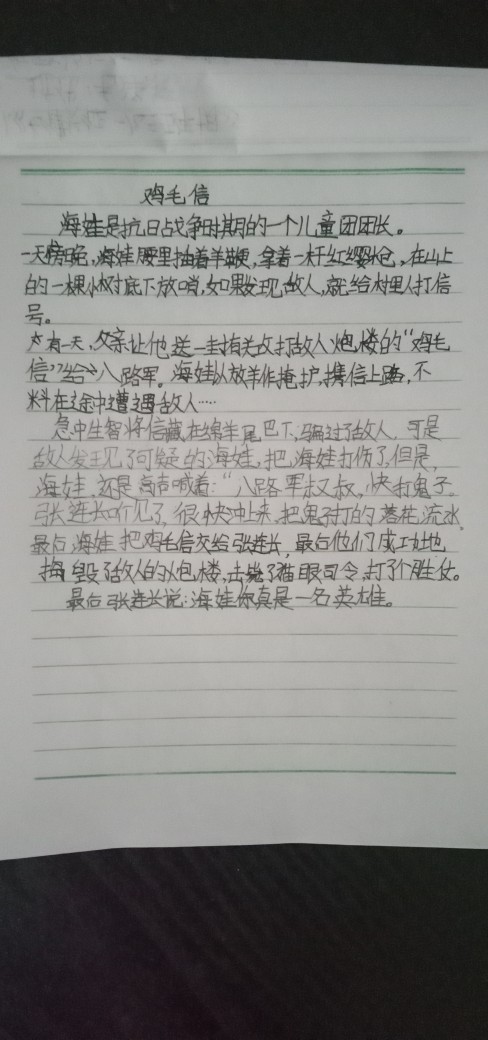 鸡毛信
海娃是抗日战争时期的一个儿童团团长。
一天傍晚,海娃腰里抽着羊鞭,拿着一杆红缨枪,在山上
的一棵小树底下放哨,如果发现敌人,就给村里人打信
号。
有一天,父亲让他送一封有关攻打敌人炮楼的“鸡毛
信”给八路军。海娃以放羊作掩护,携信上路,不
料在途中遭遇敌人……
急中生智将信藏在绵羊尾巴下,骗过了敌人,可是
敌人发现了可疑的海娃,把海娃打伤了,但是,
海娃,还是高声喊着:“八路军叔叔,快打鬼子。
张连长听见了,很快冲上来,把鬼子打的落花流水,
最后海娃把鸡毛信交给张连长,最后他们成功地
毁了敌人的炮楼,击毙了猫眼司令,打了个胜仗。
最后张连长说:海娃你真是一名英雄。